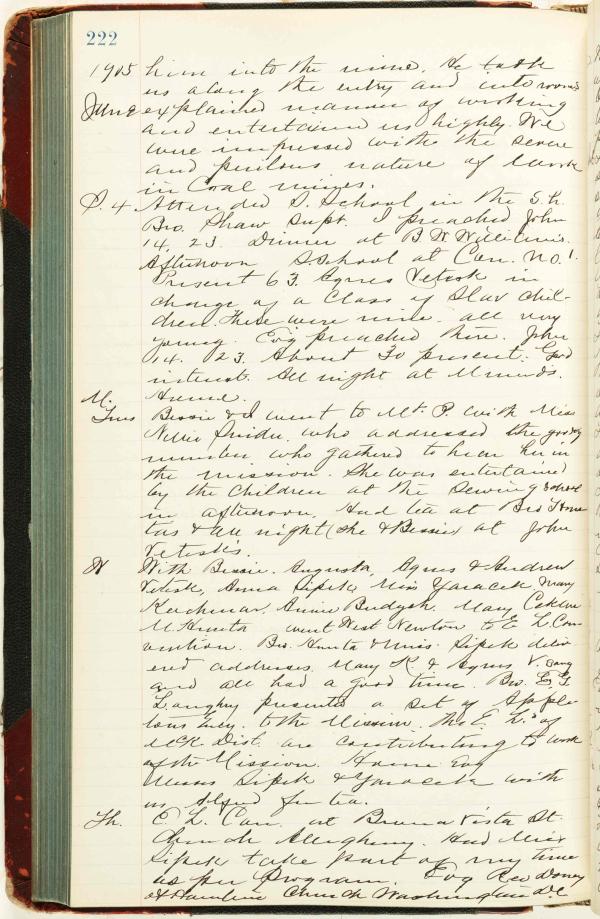 222
1905 him into the mine. He took
us along the entry and into rooms
June explained manner of working
and entertained us highly. We
were impressed with the severe
and perilous nature of work
in Coal mines.
S. 4 Attended S. School in the S. h.
Bro. Shaw Supt. I preached John
14, 23. Dinner at B. W.
Afternoon S. School at Con. No. 1.
Present 63. Agnes Vetesk in
charge of a Class of Slav chil-
dren. There were nine. all very
young. Evg preached here. John
14. 23. About 30 present. Good
interest. All night at
M. Home.
Tues Bessie & I went to Mt. P. with Miss
Nellie who addressed the goodly
number who gathered to hear her in
the mission. She was entertained
by the children at the Sewing School
in afternoon. Had tea at Bro
& all night (she & Bessie) at John

W With Bessie. Augusta, Agnes & Andrew
Vetesk, Anna Sipek Miss Yaracek, Mary
Annie Mary
went West Newton to E L Con-
vention. Bro. & Miss Sipek deliv-
ered addresses. Mary K. & Agnes V. sang
and all had a good time. Bro.
presented a set of Apple-
tons to the Mission. The E. L.s of
McK. Dist. are contributing to work
of the Mission. Home Evg
Misses Sipek & Yaracek with
us for tea.
Th. E. L. Con. at Buena Vista St.
Church Allegheny. Had Miss
Sipek take part of my time
as per Program. Evg Rev
of Church Washington D.C.